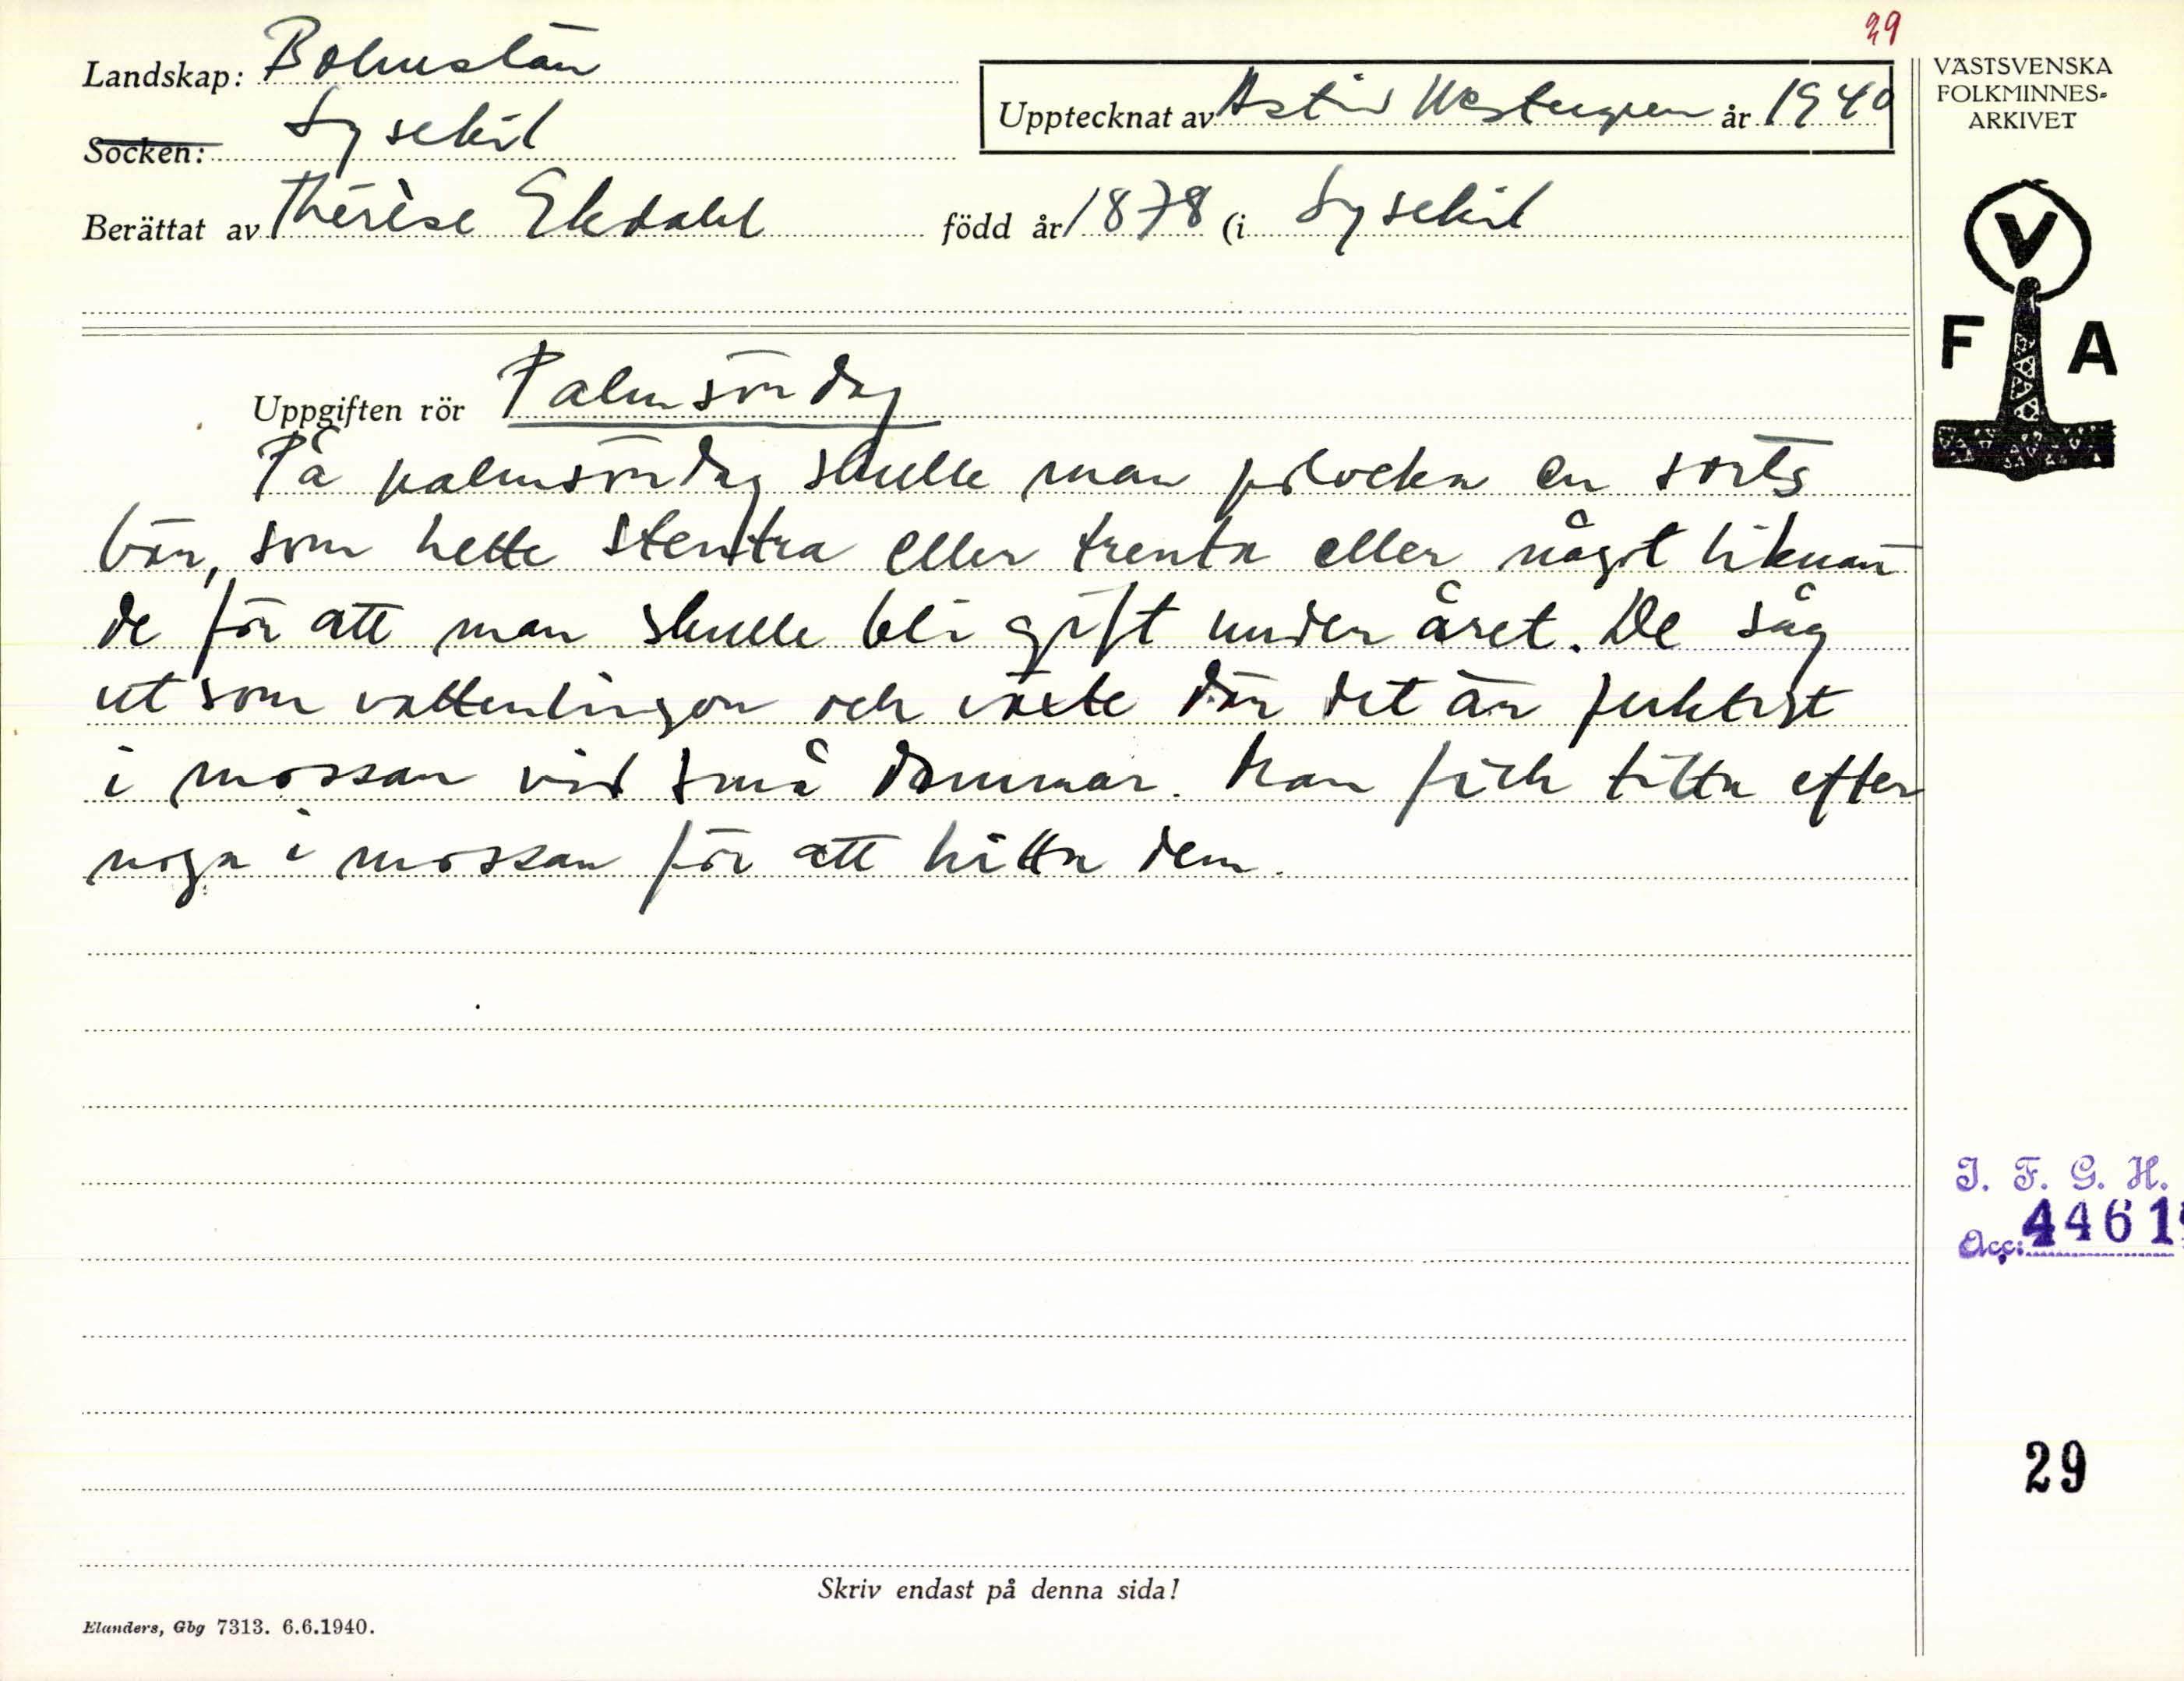 29
Landskap: Bohuslän
Socken: Lysekil
Upptecknat av Astrid Westergren år 1940
Berättat av Thérèse Ekdahl född år 1878 (i Lysekil
VÄSTSVENSKA
FOLKMINNES-
ARKIVET
V
F A
Uppgiften rör Palmsöndag
På palmsöndag skulle man plocka en sorts
bär, som hette stentra eller trenta eller något liknan
de för att man skulle bli gift under året. De såg
ut som vattenlingon och växte där det är fuktigt
i mossan vid små dammar. Man fick titta efter
noga i mossan för att hitta dem.
I. F. G. H.
Acc: 4461
29
Skriv endast på denna sida!
Elanders, Gbg 7313. 6.6.1940.